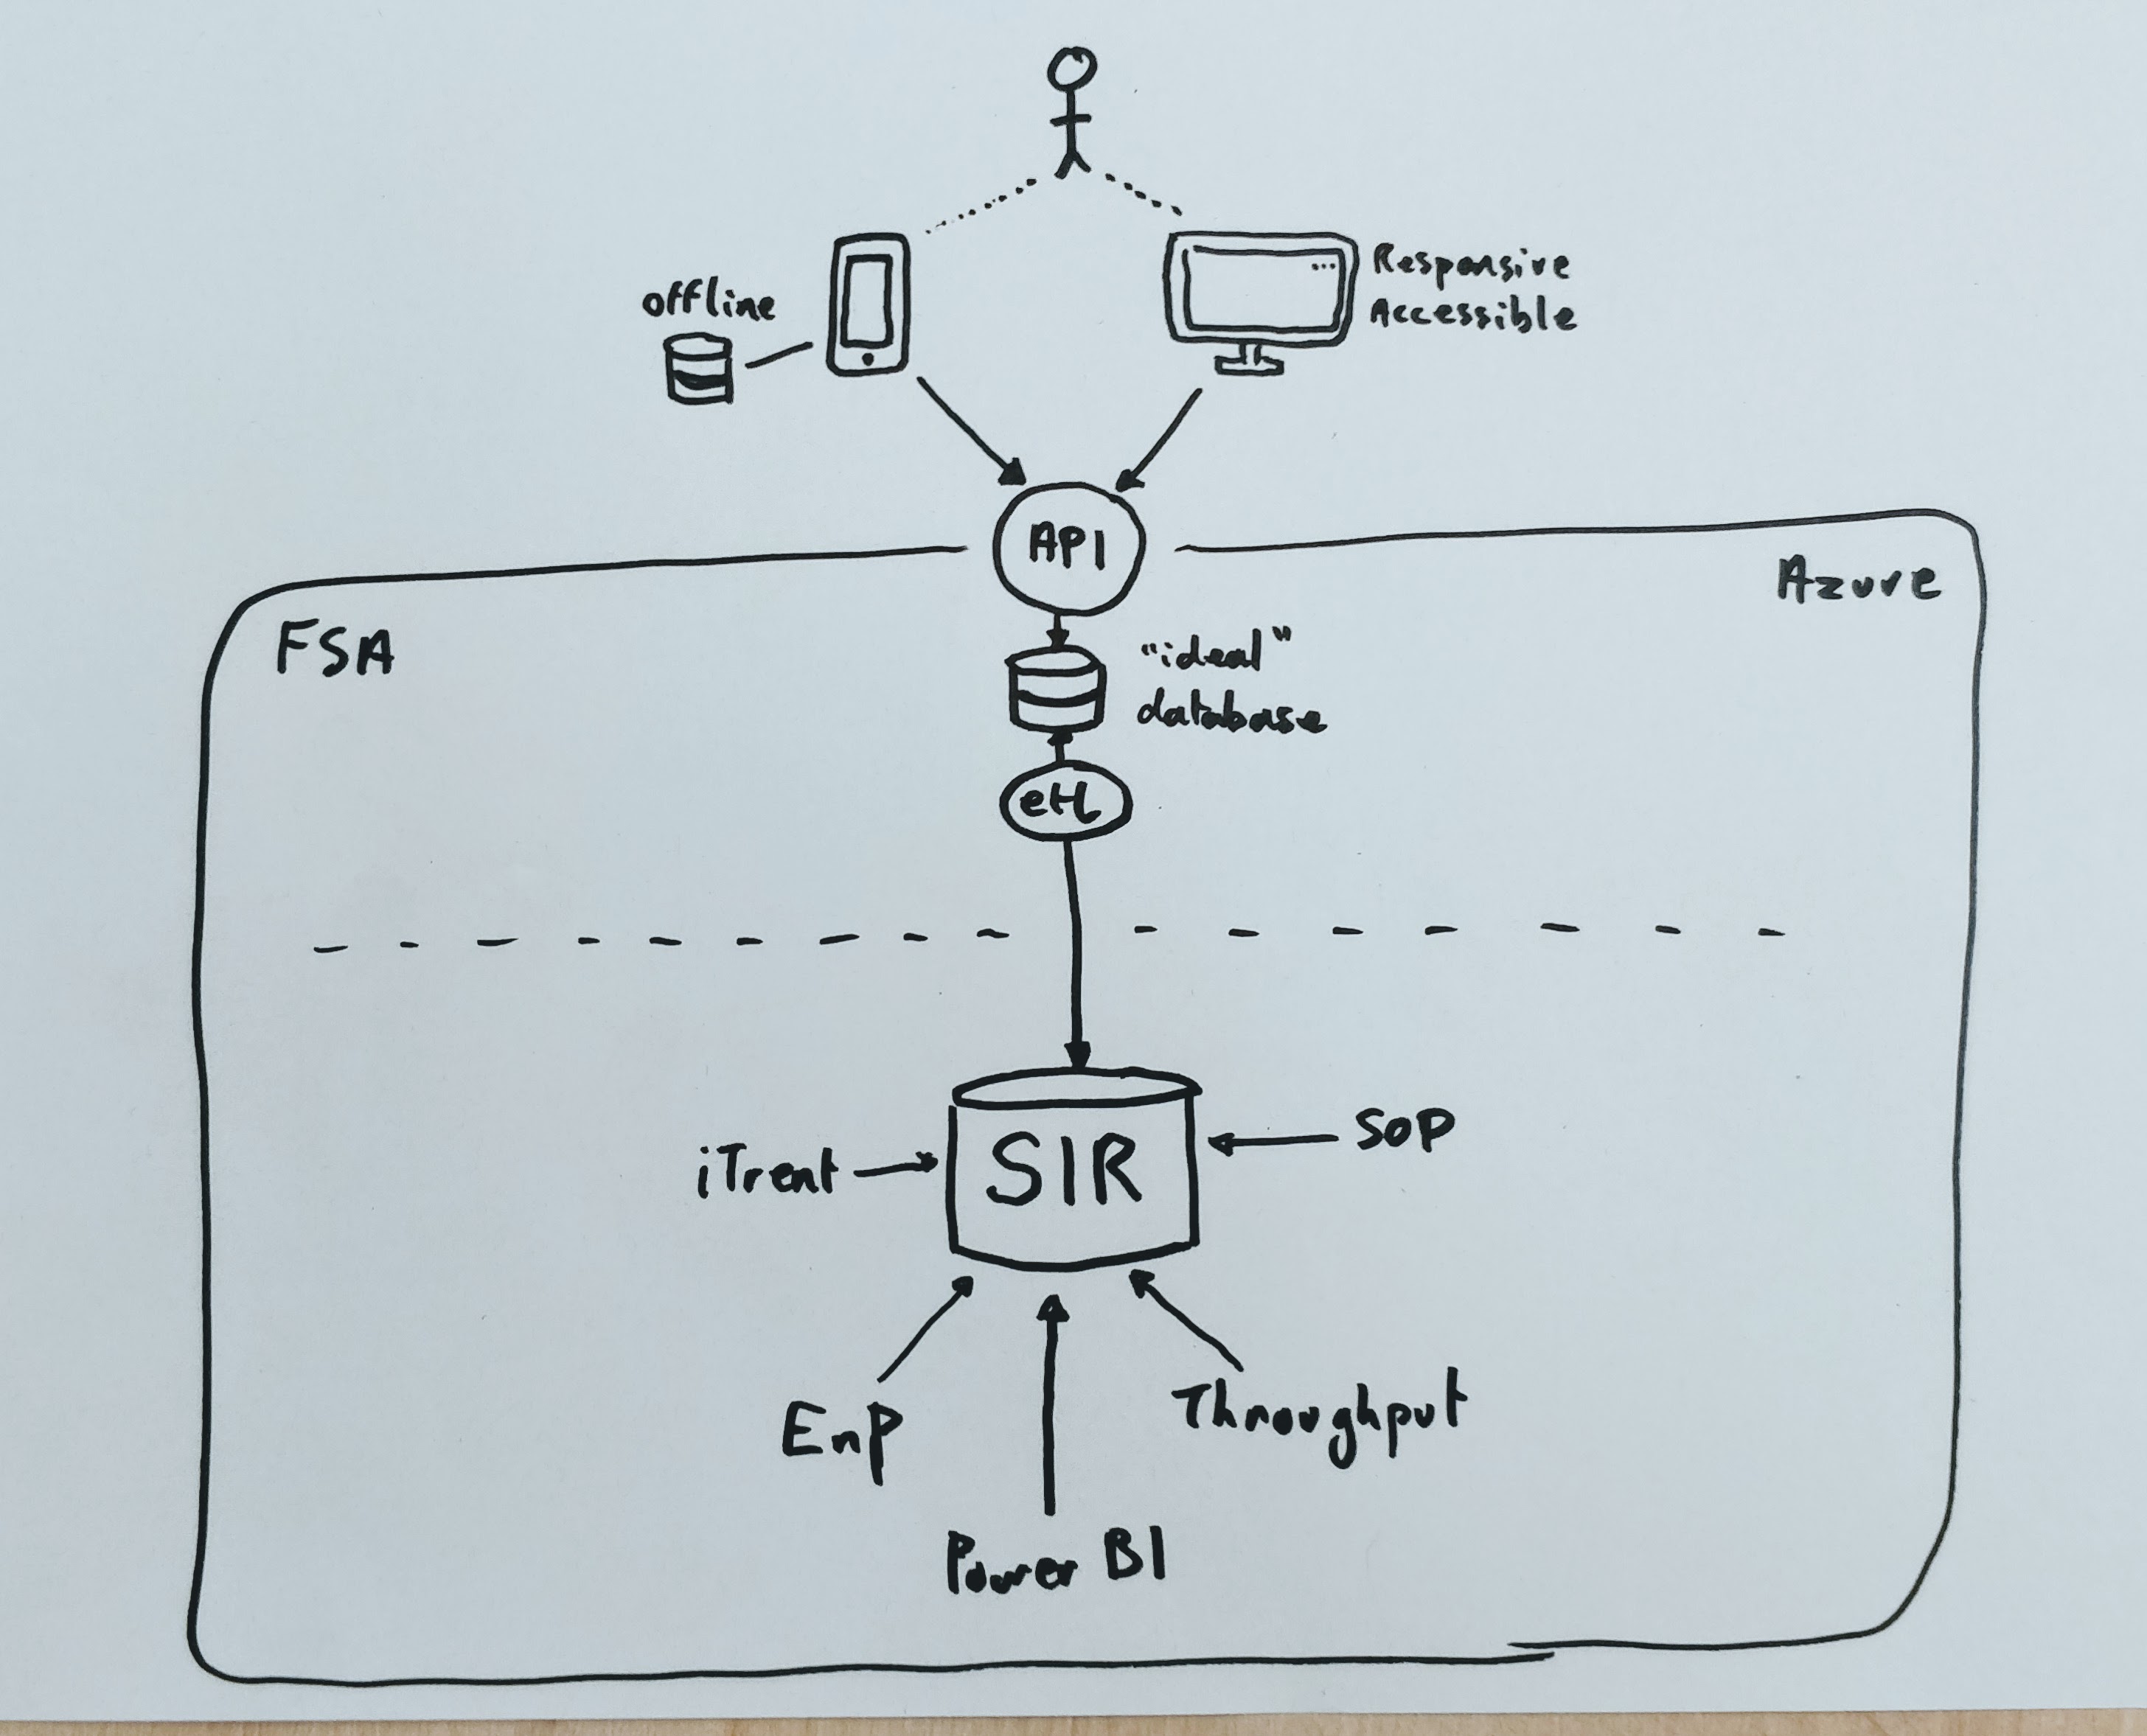 offline
Responsive
Accessible
API
Azure
FSA
"ideal"
database
etl
SIR
iTrent
SOP
EnP
Throughput
Power BI